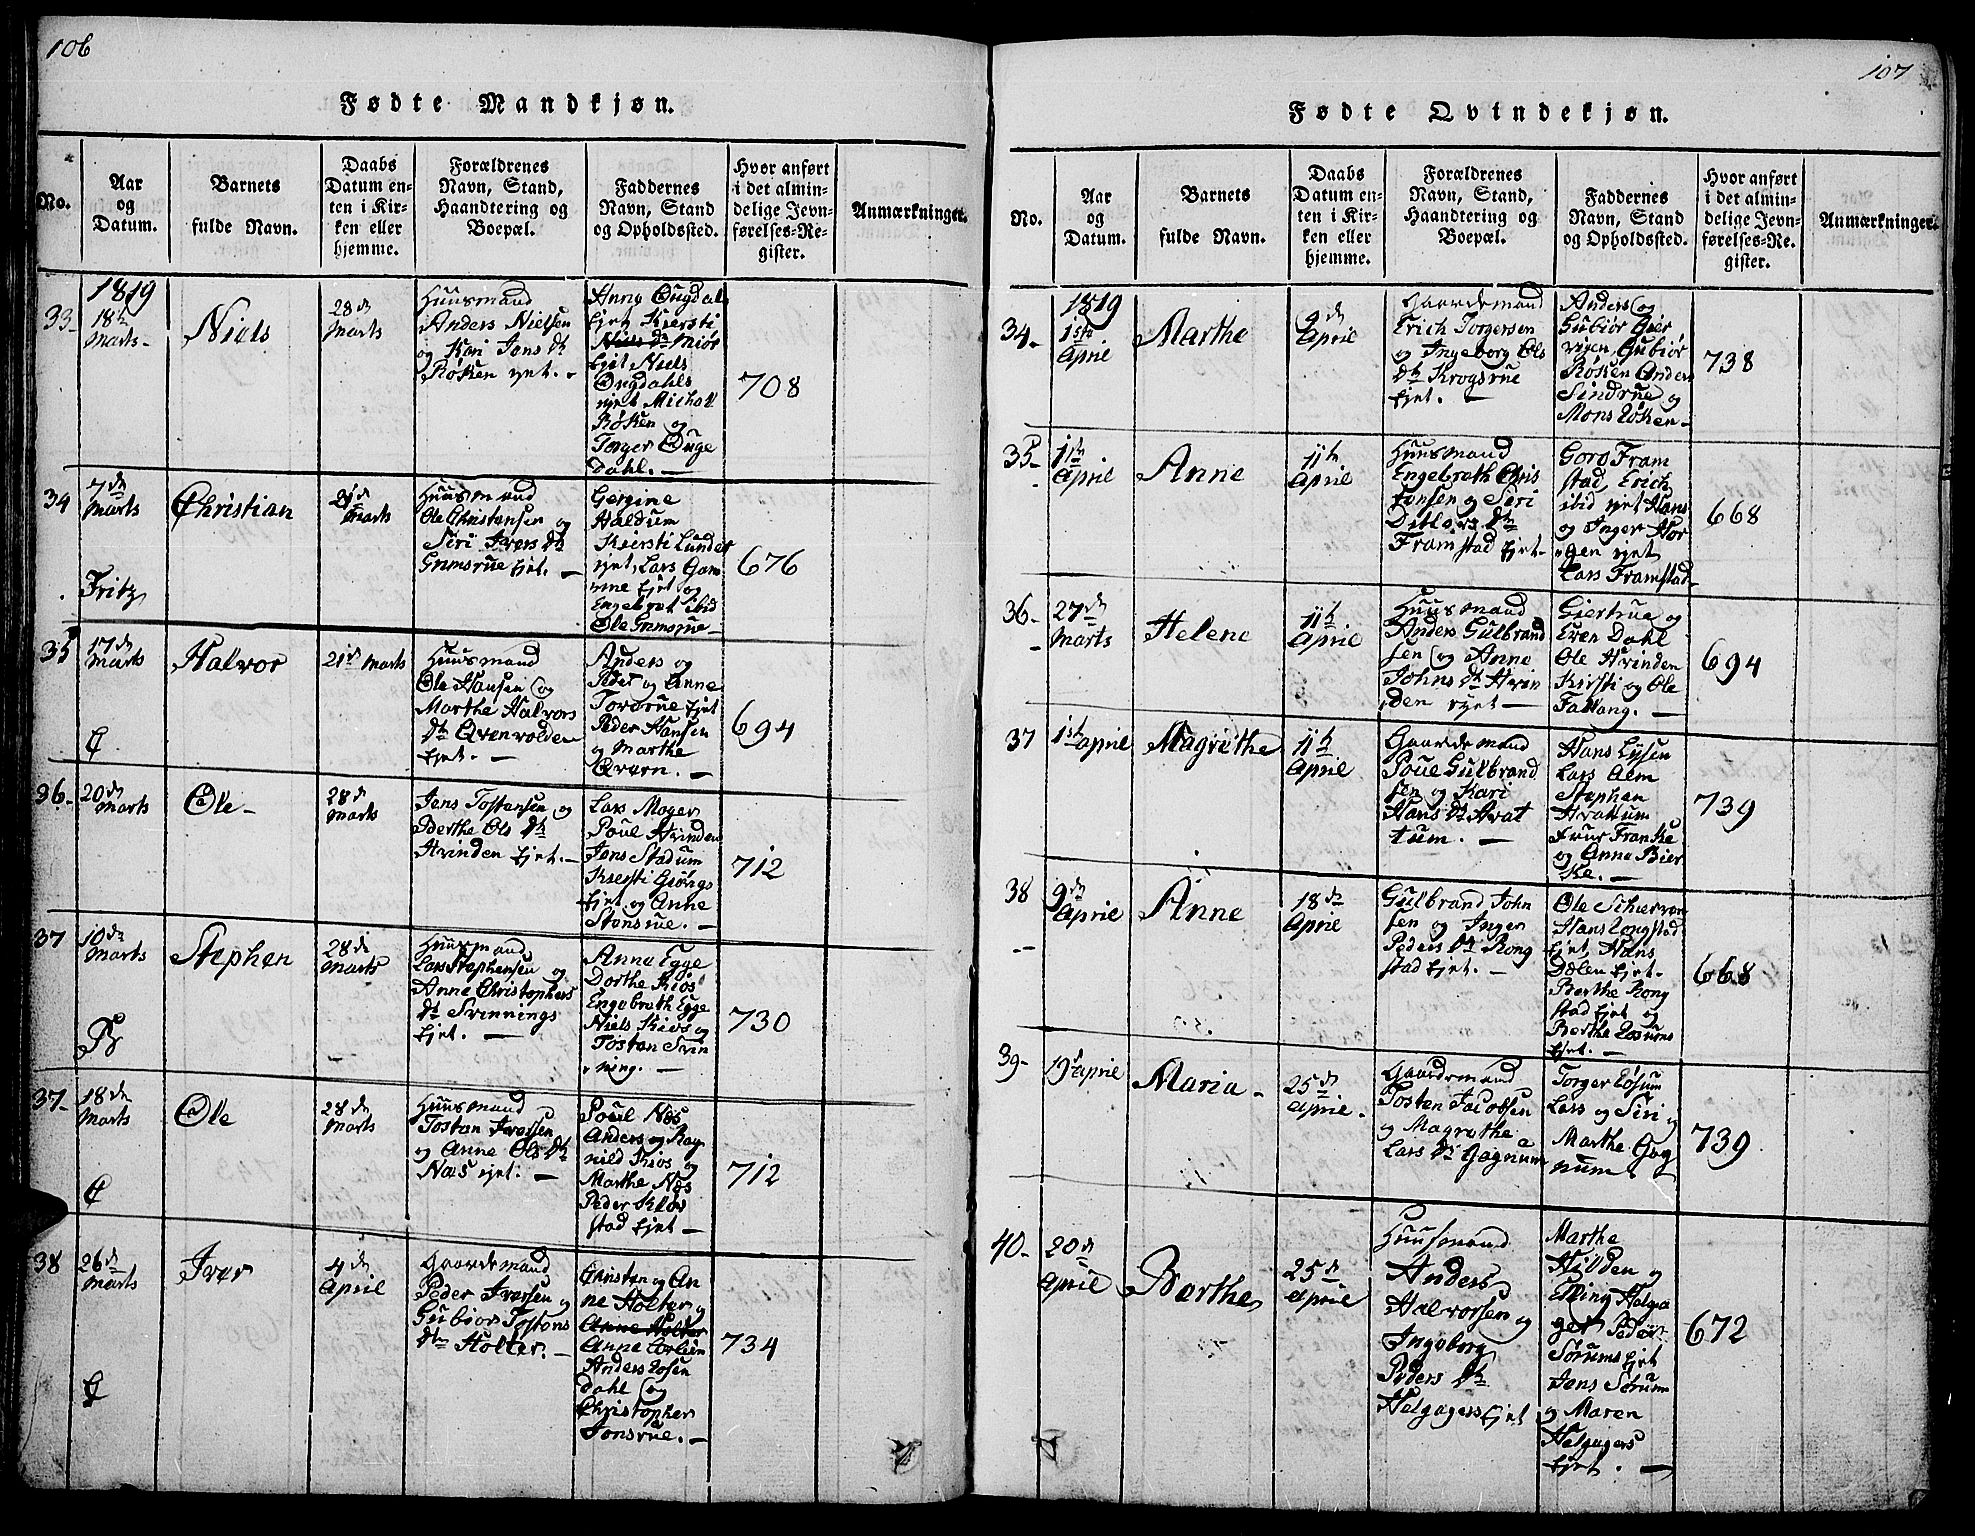 106
Fødte Mandkjøn.
No.
Aar
og
Datum.
Barnets
fulde Navn.
Daabs
Datum en-
ten i Kir-
ken eller
hjemme.
Forældrenes
Navn, Stand,
Haandtering og
Boepæl.
Faddernes
Navn, Stand
og Opholdssted.
Hvor anført
i det almin-
delige Jevn-
førelses-Re-
gister.
Anmærkninger.
1819
33-
18de
Marts-
Niels
28de
Marts
Huusmand
Anders Nielsen
og Kari Jens Dtr
Røken
Kiersti
Niels
Michell
Røken og
Torger Ouge
Dahl. -
708
34
7de
Marts
Christian
Marts
Huusmand
Ole Christensen og
Siri Ivers Dtr
Grimsrue Ejet. -
Haldum
Kiersti Lunder
Lars
Engebret ibid
Ole Grimsrue -
676
Fritz
35
17de
Marts
Halvor
21de Marts
Huusmand
Ole Hansen og
Marthe Halvors
Dtr Qvenvolden
Ejet. -
Anders og
Peder og Anne
Peder Hansen
og Marthe
Qvern. -
694
36-
20de
Marts
Ole-
28de
Marts
Jens Tostensen og
Berthe Ols Dtr
Hvinden Ejet. -
Lars Moger
Poul Hvinden
Jens Stadum
Kiersti
Ejet og Anne
Stensrue. -
712
37
10de
Marts
Stephen
28de
Marts
Huusmand
Lars Stephensen og
Anne Christophers
Dtr Svinnings
Ejet. -
Anne Egge
Dorthe Kios
Engebreth Egge
Niels Kios og
Tosten Svin
ning. -
730
37-
18de
Marts
Ole
28de
Marts
Huusmand
Tosten Iversen
og Anne Ols Dtr
Næs Ejet. -
Poul Næs
Anders og Rag
nild Kios og
Marthe Næs
Peder
stad Ejet -
712
38
26de
Marts
Iver
4de
April
Gaardemand
Peder Iversen og
Gubior Tostens
Dtr Holter. -
Christen og An
ne Holter og
Anne Holter
Anders Losen
dahl og
Christopher
Jonsrue. -
734
107
Fødte Qvindekjøn.
No.
Aar
og
Datum.
Barnets
fulde Navn.
Daabs
Datum en-
ten i Kir-
ken eller
hjemme.
Forældrenes
Navn, Stand,
Haandtering og
Boepæl.
Faddernes
Navn, Stand
og Opholdssted.
Hvor anført
i det almin-
delige Jevn-
førelses-Re.
gister.
Anmærkninger.
1819
34-
1ste
April
Marthe
9de
April
Gaardemand
Erich Torgersen
og Ingeborg Ols
Dtr Krogsrue
Ejet. -
Anders og
Gubiør
Gubiør
Røken Anders
Sindrue og
Mons Røken-
738
35-
April
Anne
11te
April
Huusmand
Engebreth Chris
tensen og Siri
Ditlevs Dtr
Framstad Ejet-
Goro Fram
stad Erich
ibid Ejet Hans
og Inger Hor
gen Ejet
Lars Framstad-
668
36-
27de
Marts
Helene
11te
April
Huusmand
Anders Gulbrand
sen og Anne
Johns Dtr Hvin
den Ejet -
Giertrue og
Even Dahl
Ole Hvinden
Kirsti og Ole
Fallang. -
694
37
1ste april
Magrethe
11te
April
Gaardemand
Poul Gulbrand
sen og Kari
Hans Dtr Hvat
tum. -
Hans Lysen
Lars Alm
Stephen
Hvattum
Fruer Franke
og Anne Bier
ke. -
739
38
9de
April
Anne
18de
April
Gulbrand John
sen og Inger
Peders Dtr Rong
stad Ejet. -
Ole Schierven
Hans Longstad
Ejet, Hans
Dælen Ejet.
Berthe Rong
stad Ejet og
Berthe Losums
Ejet. -
668
39-
April
Maria-
25de
April.
Gaardemand
Tosten Jacobsen
og Magrethe
Lars Dtr Gagnum
Torger Løsum
Lars og Siri og
Marthe Gag
num
739
40-
20de
April
Berthe
25de
April
Huusmand
Anders
Halvorsen og
Ingeborg
Peders Dtr
Helgagers Ejet
Marthe
Hilden og
Elling Helga
ger Peder
Sørums Ejet
Jens Sørum
og Maren
Helgagers
Ejet. -
672